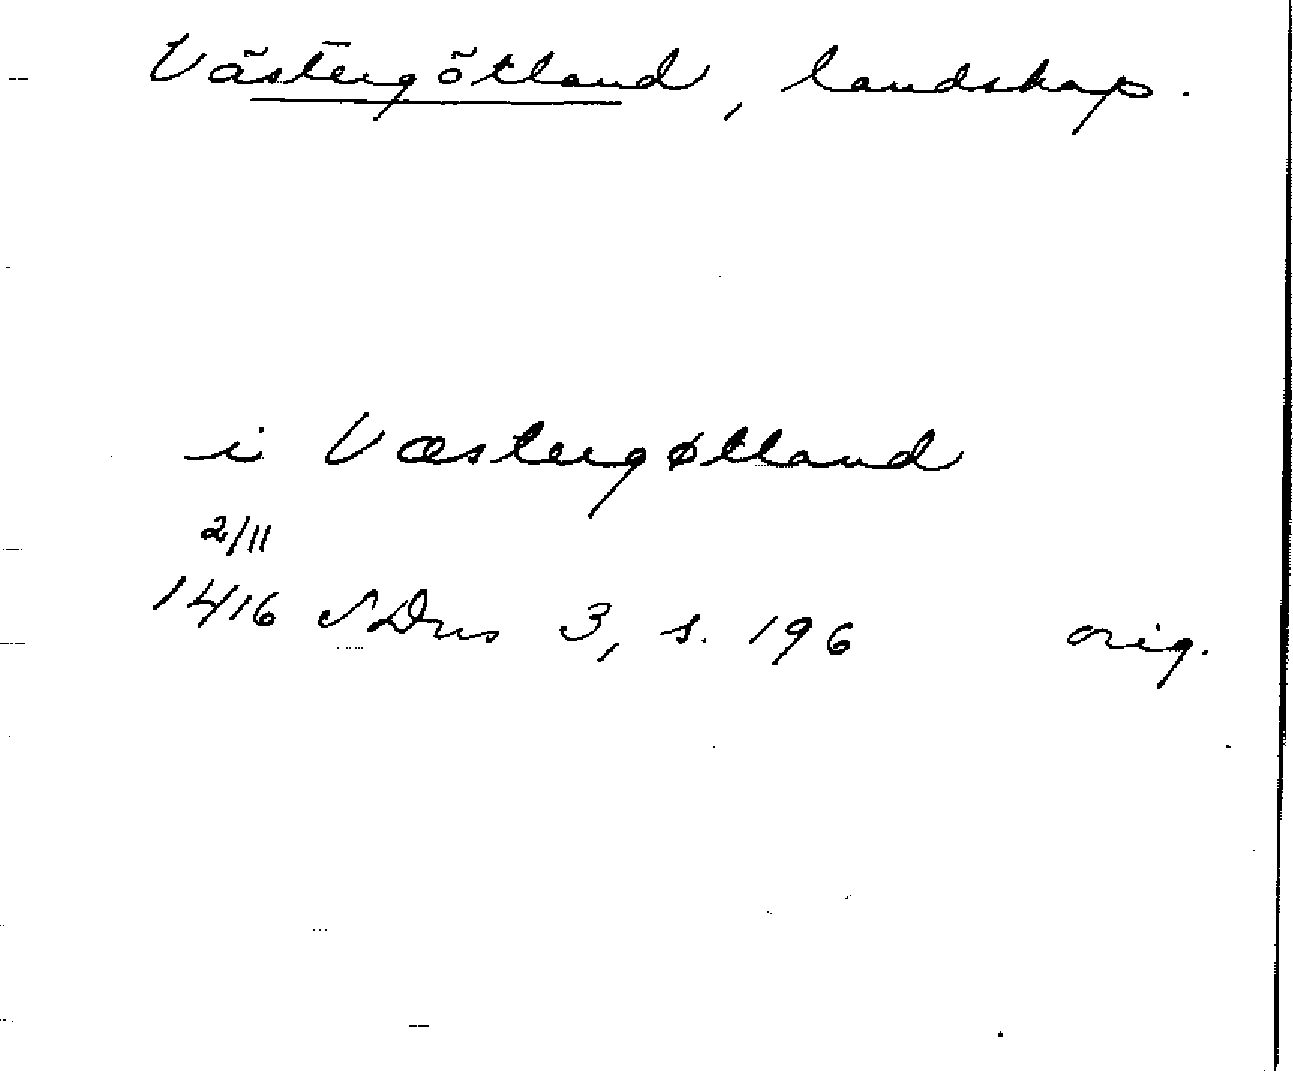 Västergötland, landskap.
i Væstergøtland
2/11
1416 SDns 3, s. 196 orig.